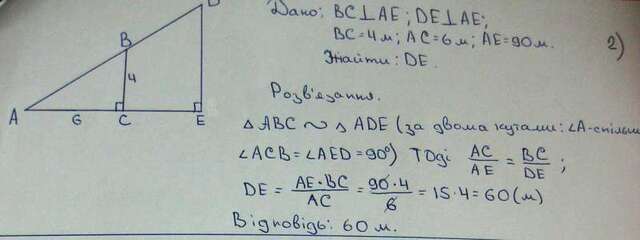 Дано: BC⊥AE; DE⊥AE;
BC=4м; AC=6м; AE=90м.
Знайти: DE.
2)
D
B
4
A
6
C
E
Розв'язання.
△ ABC ∾ △ ADE (за двома кутами: ∠A-спільн
∠ACB=∠AED=90°) Тоді AC/AE = BC/DE ;
DE = AE·BC/AC = 90·4/6 = 15·4=60(м)
Відповідь: 60 м.